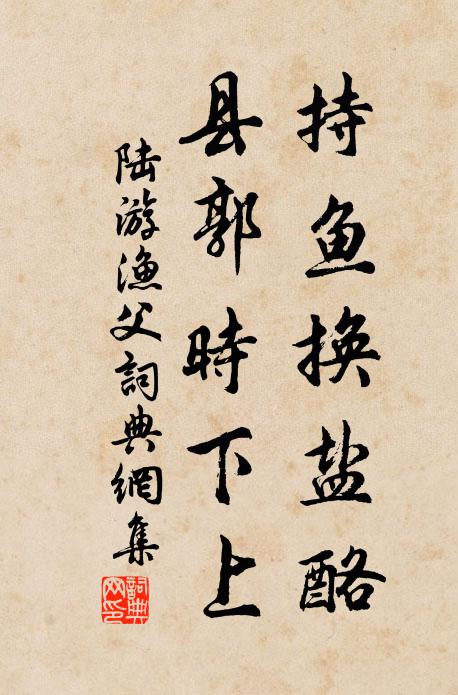 持鱼换盐酪
县郭時下上
陆游渔父詞典網集
詞典网印